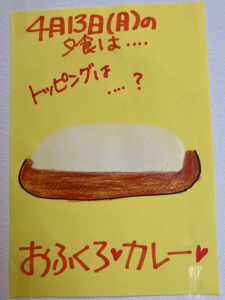 4月13日(月)の
夕食は....
トッピングは
....?
おふくろ♥カレー♥